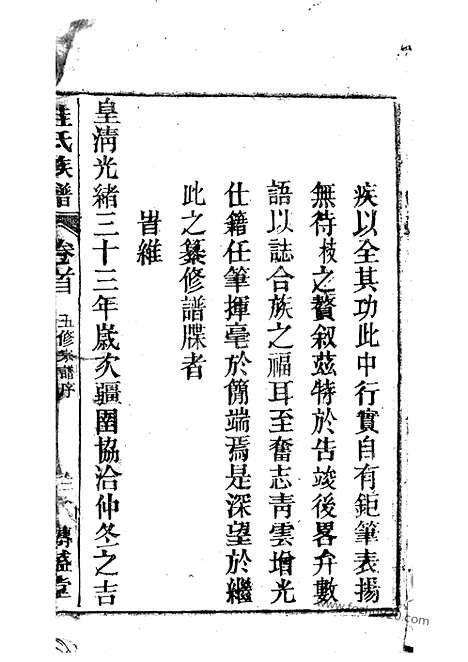 疾以全其功此中行實自有鉅筆表揚
無待枝之贅叙茲特於告竣後畧弁數
語以誌合族之福耳至奮志青雲增光
仕籍任筆揮毫於簡端焉是深望於繼
此之纂修譜牒者
旹維
皇清光緒三十三年歲次疆圉協洽仲冬之吉
氏族譜 卷首 五修 譜序